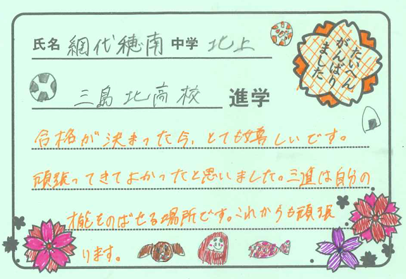 氏名 網代穂南 中学 北上
たいへん
がんばり
ました
三島北高校 進学
合格が決まったら、とても嬉しいです。
頑張ってきてよかったと思いました。三進は自分の
才能のばせる場所です。これからも頑張
ります。